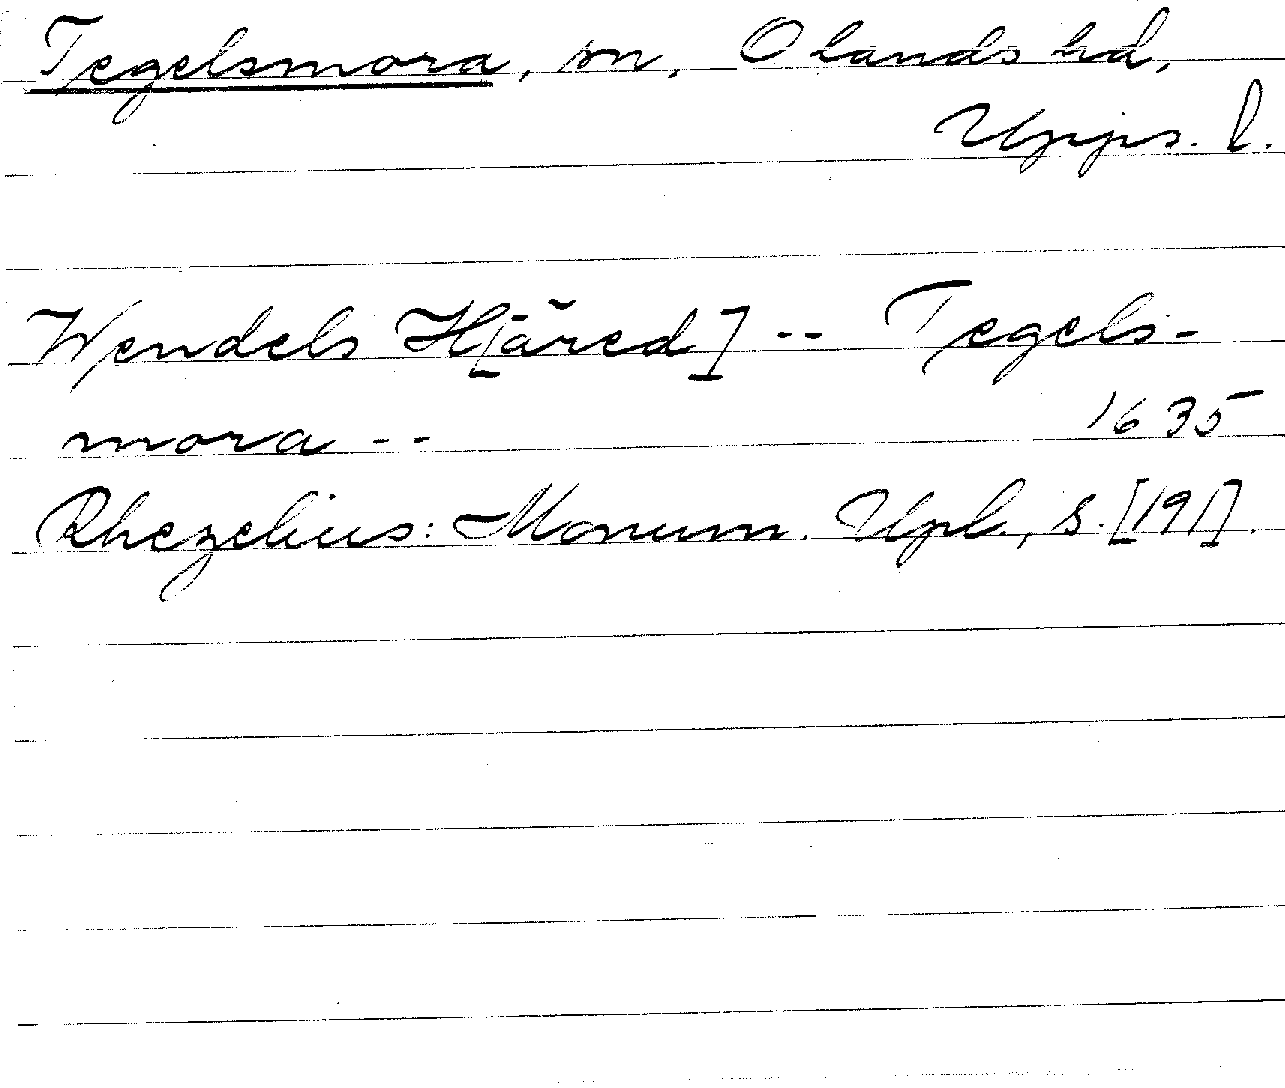 Tegelsmora, sn, Olands hd,
Upps. l.
Wendels H[äred] -- Tegels-
mora -- 1635
Rhezelius: Monum. Upl., s. [191].